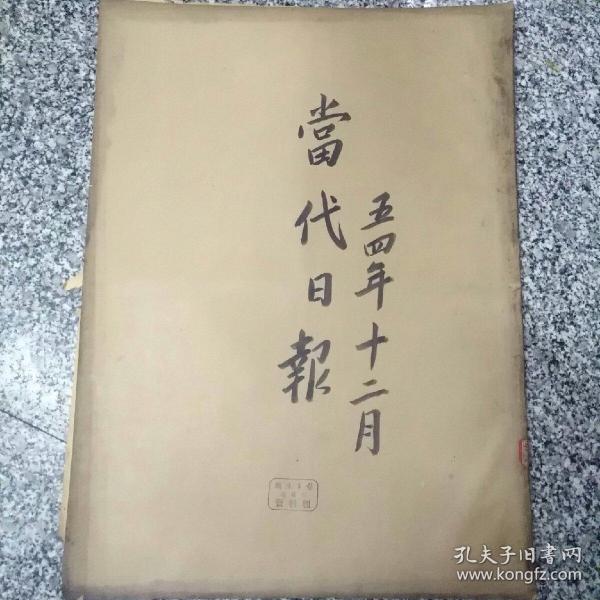 當代日報
五四年十二月
孔夫子旧书网
www.kongfz.com